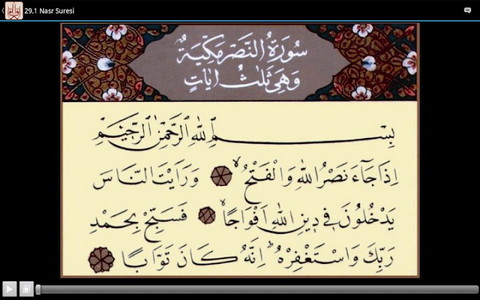 29.1 Nasr Suresi
سُورَةُ النَّصْرِ مَكِّيَّةٌ
وَهِيَ ثَلٰثُ اٰيَاتٍ
بِسْمِ اللهِ الرَّحْمٰنِ الرَّحِيمِ
اِذَا جَٓاءَ نَصْرُ اللهِ وَالْفَتْحُۙ وَرَاَيْتَ النَّاسَ
يَدْخُلُونَ فِي دِينِ اللهِ اَفْوَاجًاۙ فَسَبِّحْ بِحَمْدِ
رَبِّكَ وَاسْتَغْفِرْهُۜ اِنَّهُ كَانَ تَوَّابًا